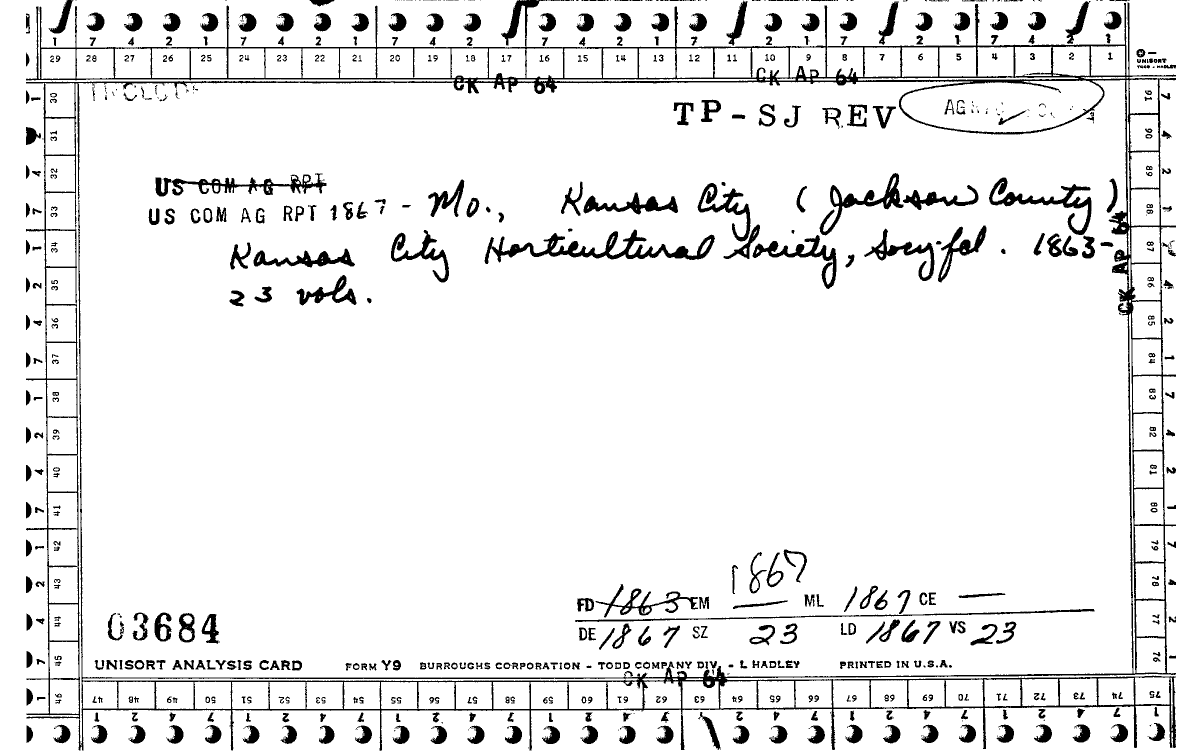 7 4 2 1 7 4 2 1 7 4 2 1 7 4 2 1 7 4 2 1 7 4 2 1 7 4 2 1
29 28 27 26 25 24 23 22 21 20 19 18 17 16 15 14 13 12 11 10 9 8 7 6 5 4 3 2 1
UNISORT
CK AP 64 CK AP 64
TP-SJ REV
US COM AG RPT
US COM AG RPT 1867 - Mo., Kansas City (Jackson County)
Kansas City Horticultural Society, Socy fd. 1863-
23 vols.
CK AP 64
30 31 32 33 34 35 36 37 38 39 40 41 42 43 44 45 46
91 90 89 88 87 86 85 84 83 82 81 80 79 78 77 76 75
1867
FD 1863 EM — ML 1867 CE —
DE 1867 SZ 23 LD 1867 VS 23
03684
UNISORT ANALYSIS CARD FORM Y9 BURROUGHS CORPORATION - TODD COMPANY DIV. - L HADLEY PRINTED IN U.S.A.
CK AP 64
47 48 49 50 51 52 53 54 55 56 57 58 59 60 61 62 63 64 65 66 67 68 69 70 71 72 73 74